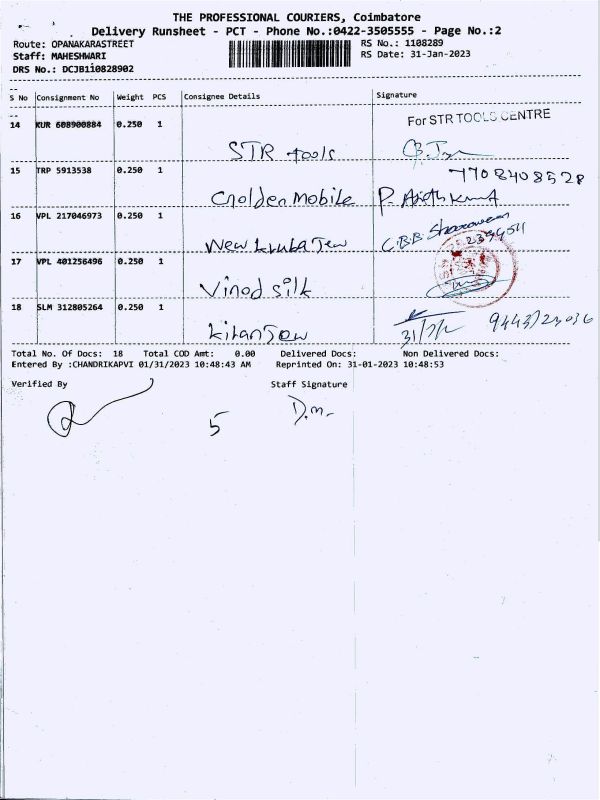 THE PROFESSIONAL COURIERS, Coimbatore
Delivery Runsheet - PCT - Phone No.:0422-3505555 - Page No.:2
Route: OPANAKARASTREET
RS No.: 1108289
Staff: MAHESHWARI
RS Date: 31-Jan-2023
DRS No.: DCJB110828902
S No Consignment No Weight PCS Consignee Details Signature
14 KUR 608900884 0.250 1
For STR TOOLS CENTRE
STR tools
15 TRP 5913538 0.250 1
7708408528
Golden Mobile
16 VPL 217046973 0.250 1
New
17 VPL 401256496 0.250 1
Vinod silk
18 SLM 312805264 0.250 1
Total No. Of Docs: 18 Total COD Amt: 0.00 Delivered Docs: Non Delivered Docs:
Entered By :CHANDRIKAPVI 01/31/2023 10:48:43 AM Reprinted On: 31-01-2023 10:48:53
Verified By Staff Signature
5
D.m.